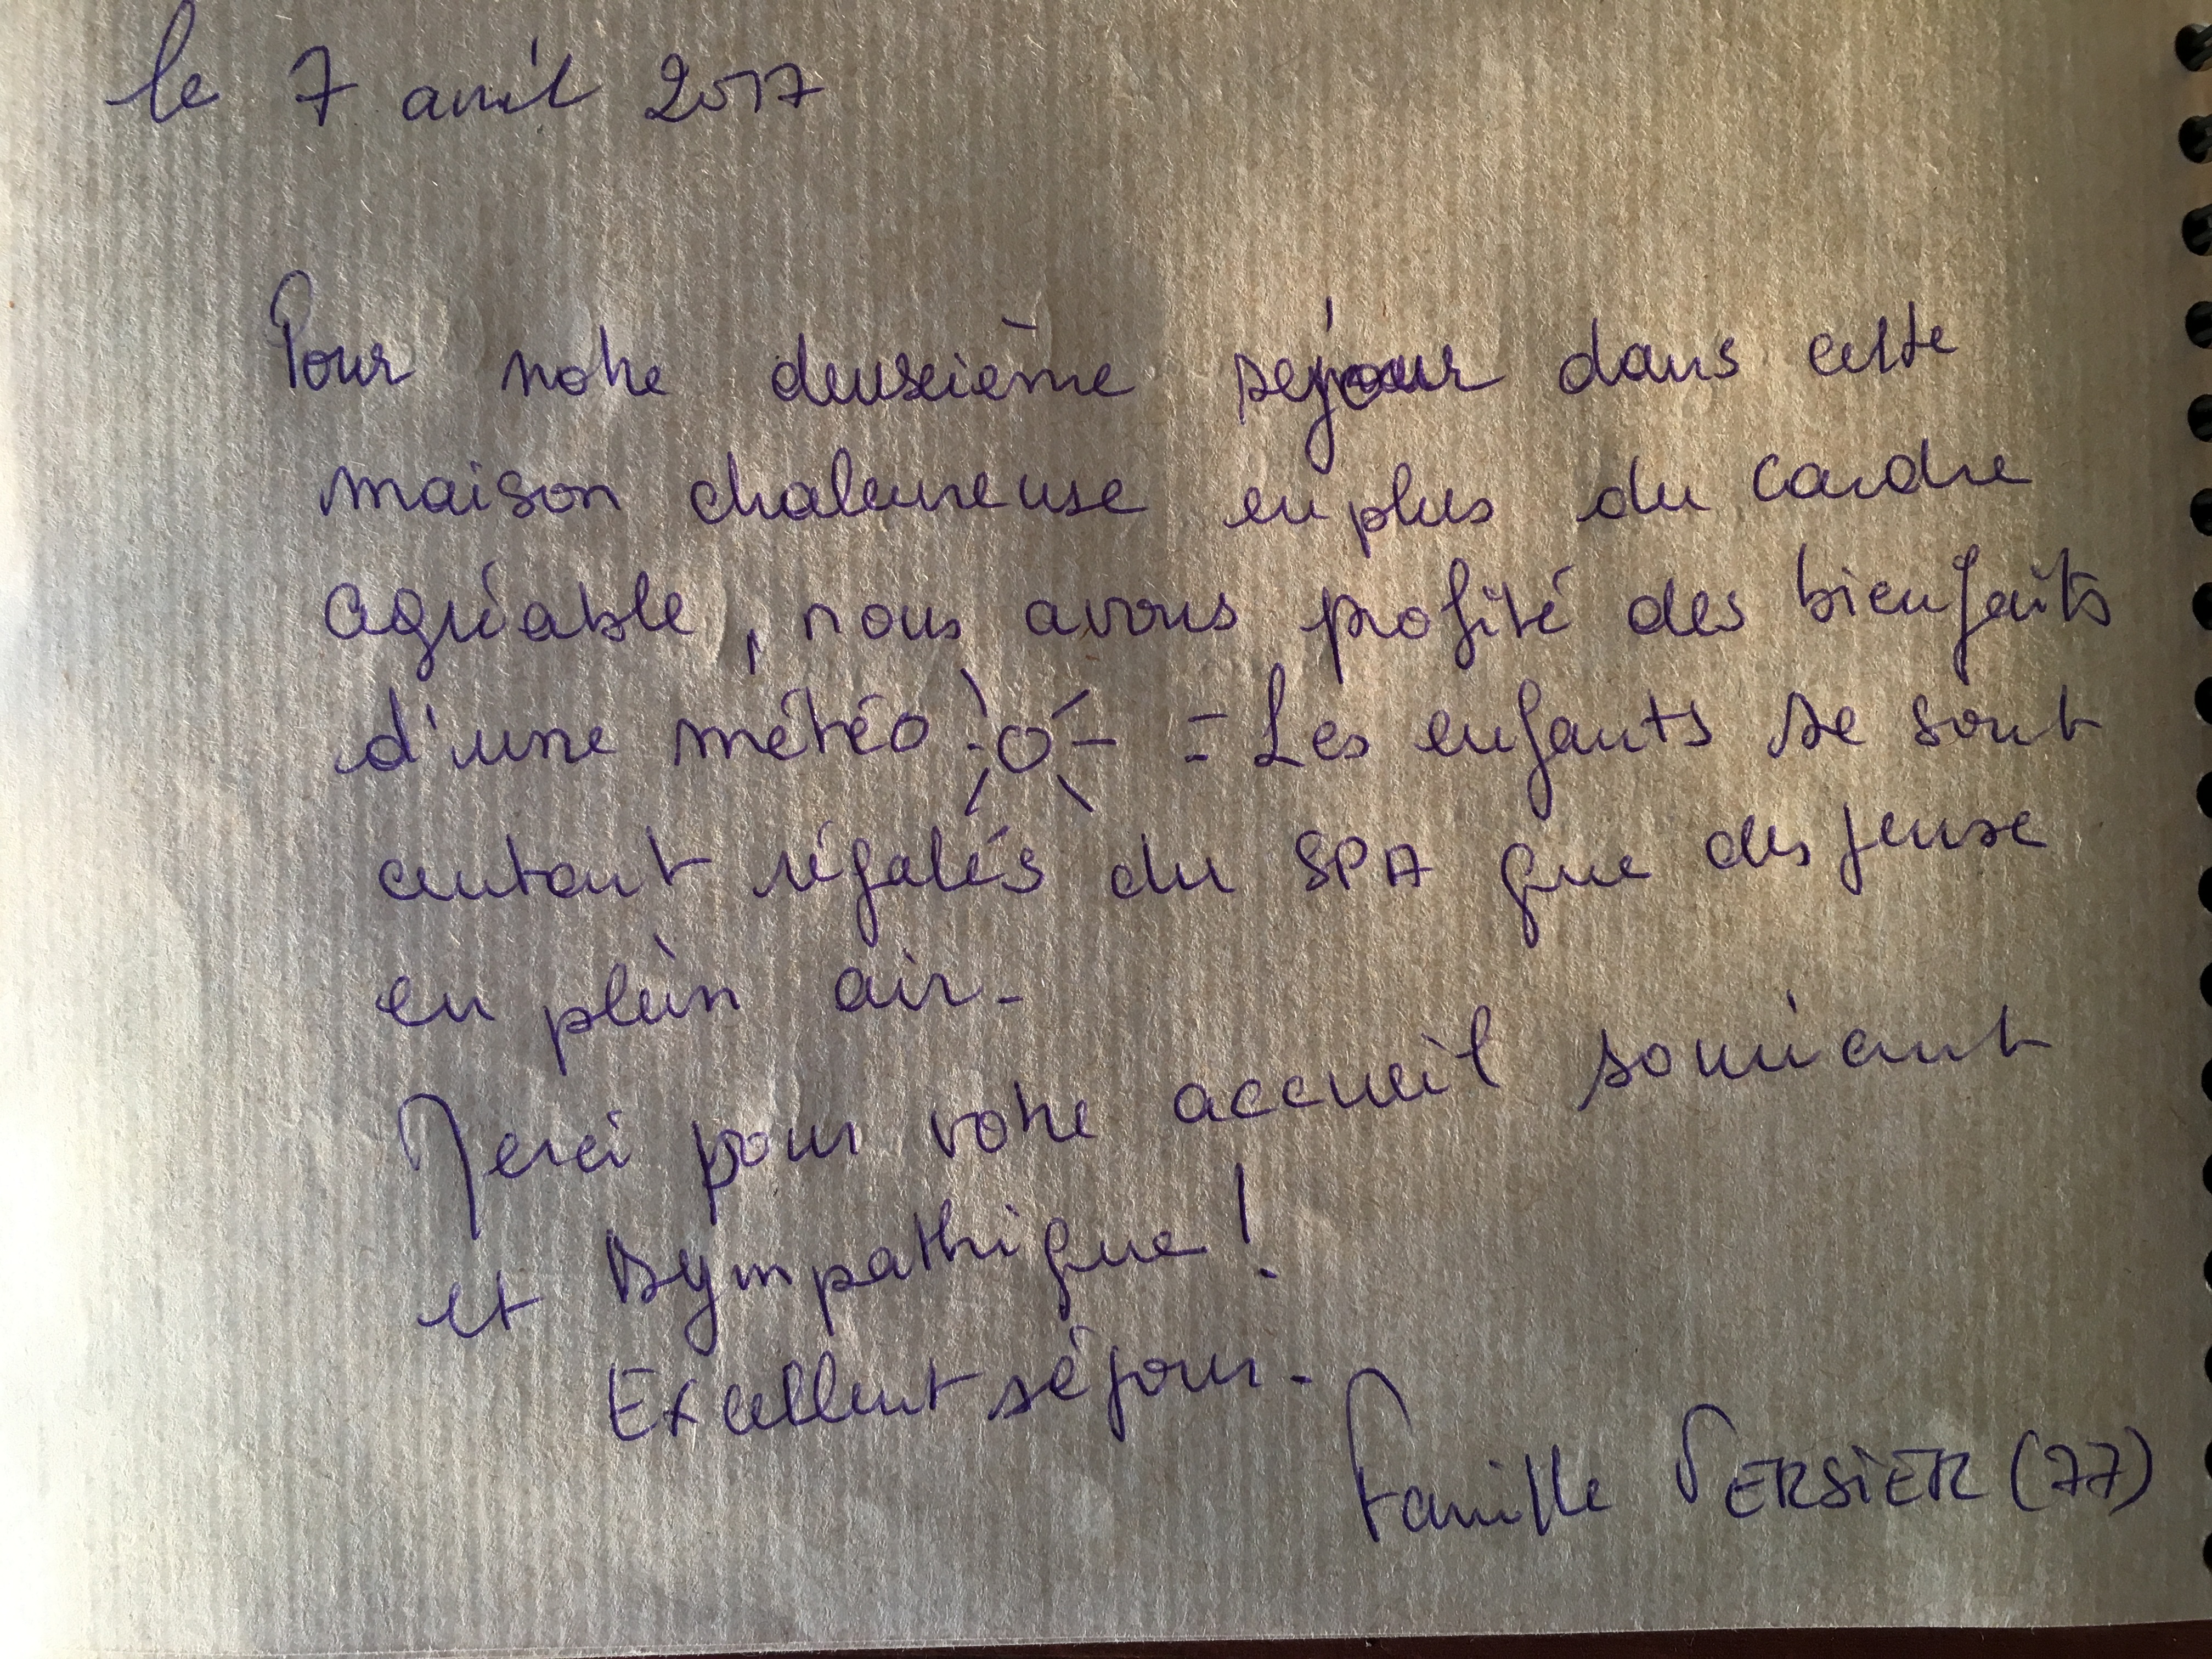 le 7 avril 2017
Pour notre deuxième séjour dans cette
maison chaleureuse en plus du cardre
agréable, nous avons profité des bienfaits
d'une météo = Les enfants se sont
autant régalés du SPA que des jeux
en plein air -
Merci pour votre accueil souriant
et sympathique !
Excellent séjour -
Famille PERSIER (77)